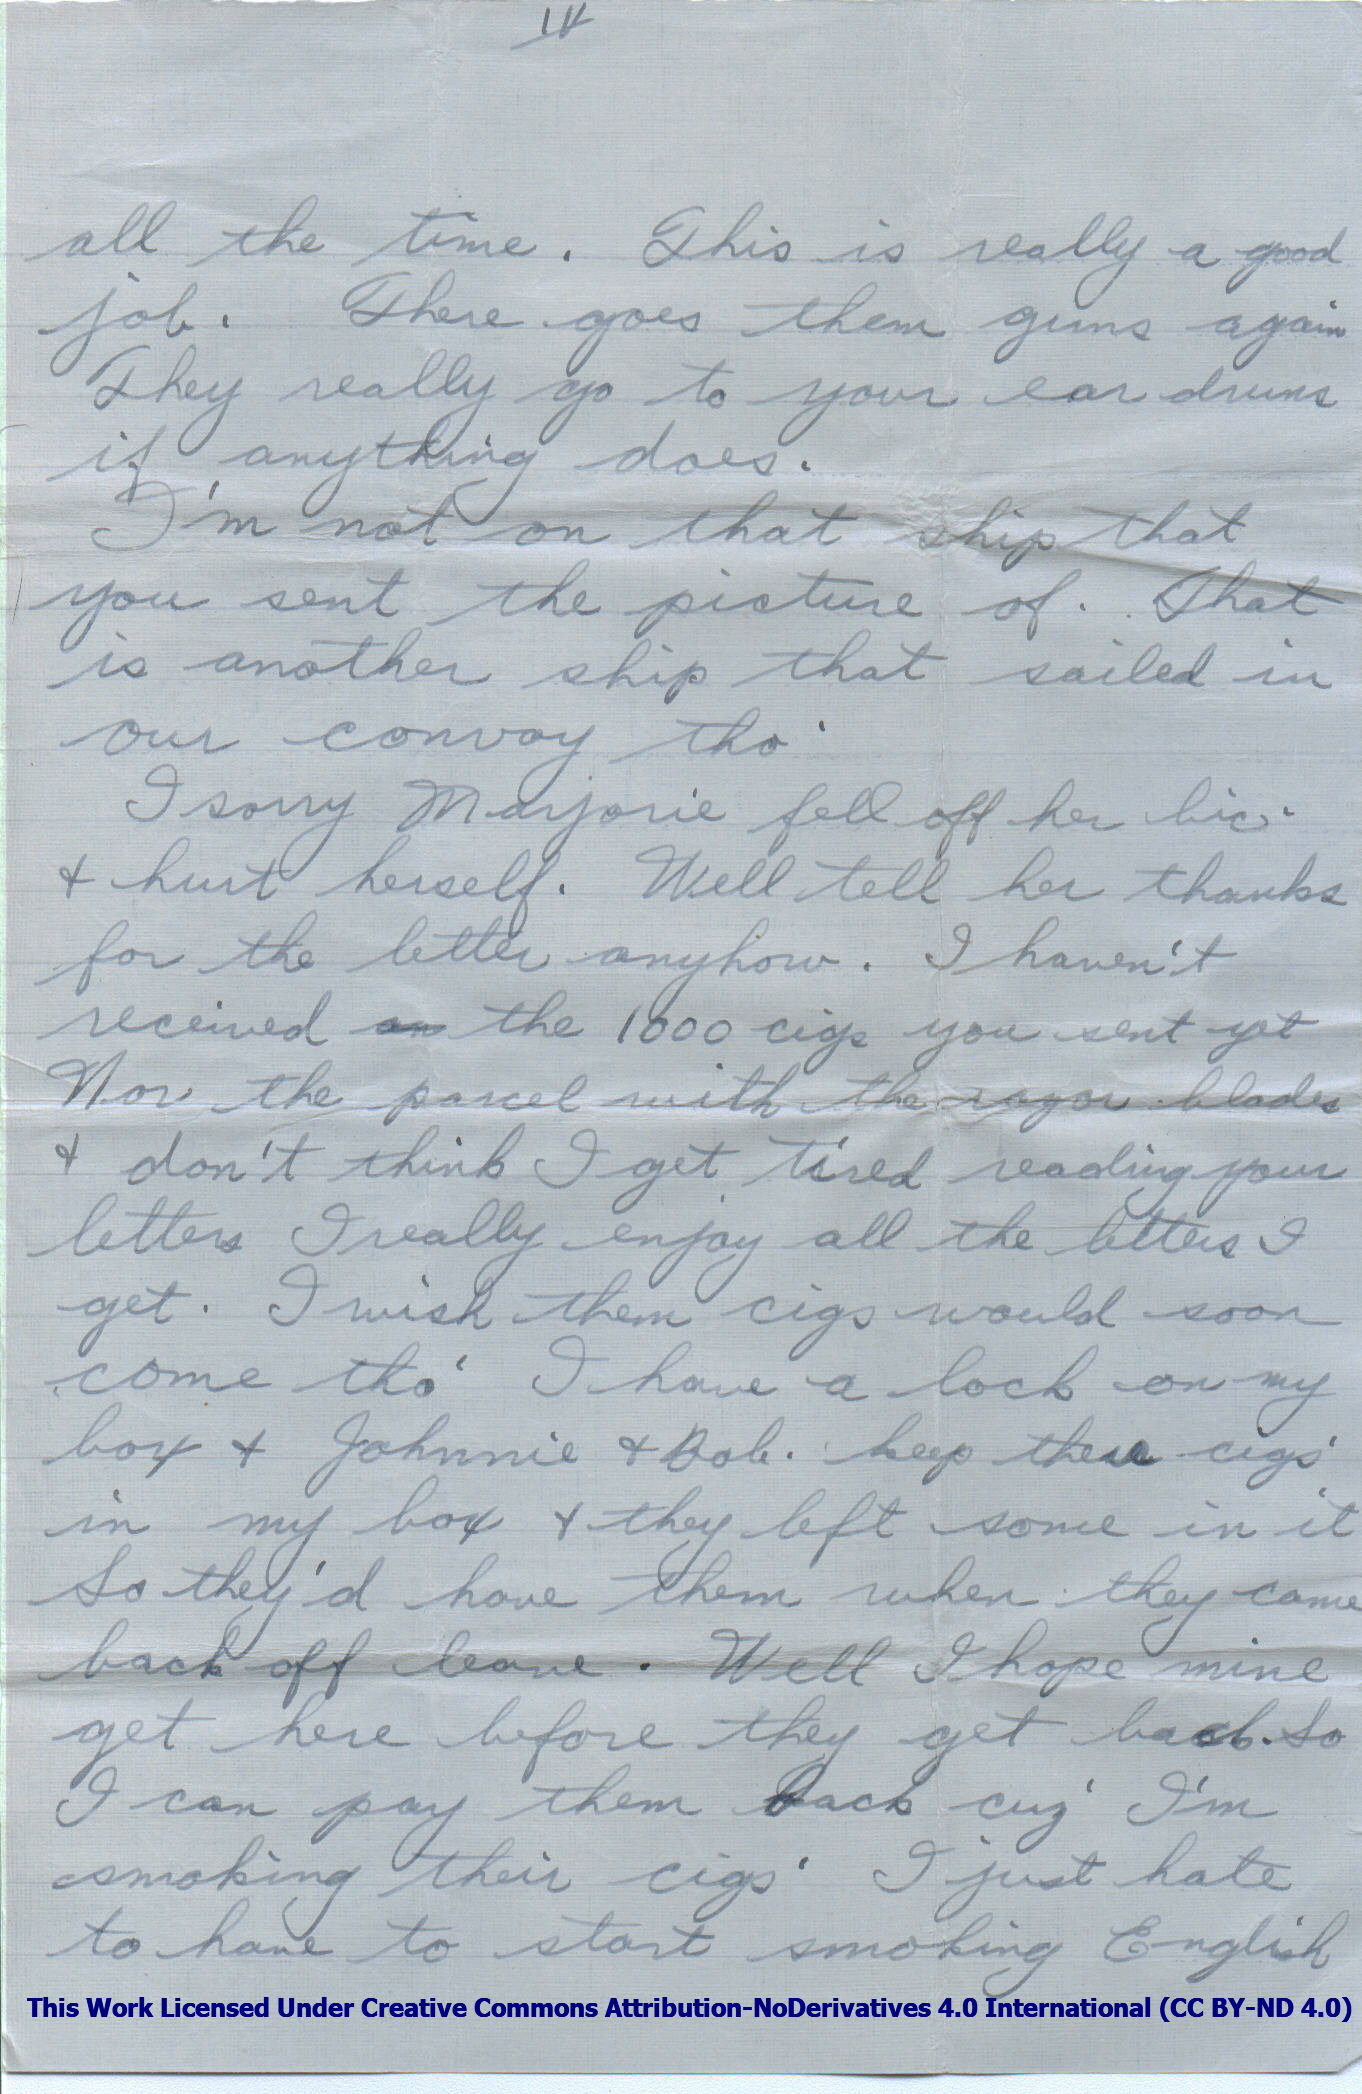 IV
all the time. This is really a good
job. There goes them guns again
They really go to your ear drums
if anything does.
I'm not on that ship that
you sent the picture of. That
is another ship that sailed in
our convoy tho'
I sorry Marjorie fell off her bic.
& hurt herself. Well tell her thanks
for the letter anyhow. I haven't
received the 1000 cigs you sent yet
Nor the parcel with the razor blades
& don't think I get tired reading your
letters I really enjoy all the letters I
get. I wish them cigs would soon
come tho' I have a lock on my
box & Johnnie & Bob. keep their cigs'
in my box & they left some in it
So they'd have them when they came
back off leave. Well I hope mine
get here before they get back. So
I can pay them back cuz' I'm
smoking their cigs' I just hate
to have to start smoking English
This Work Licensed Under Creative Commons Attribution-NoDerivatives 4.0 International (CC BY-ND 4.0)